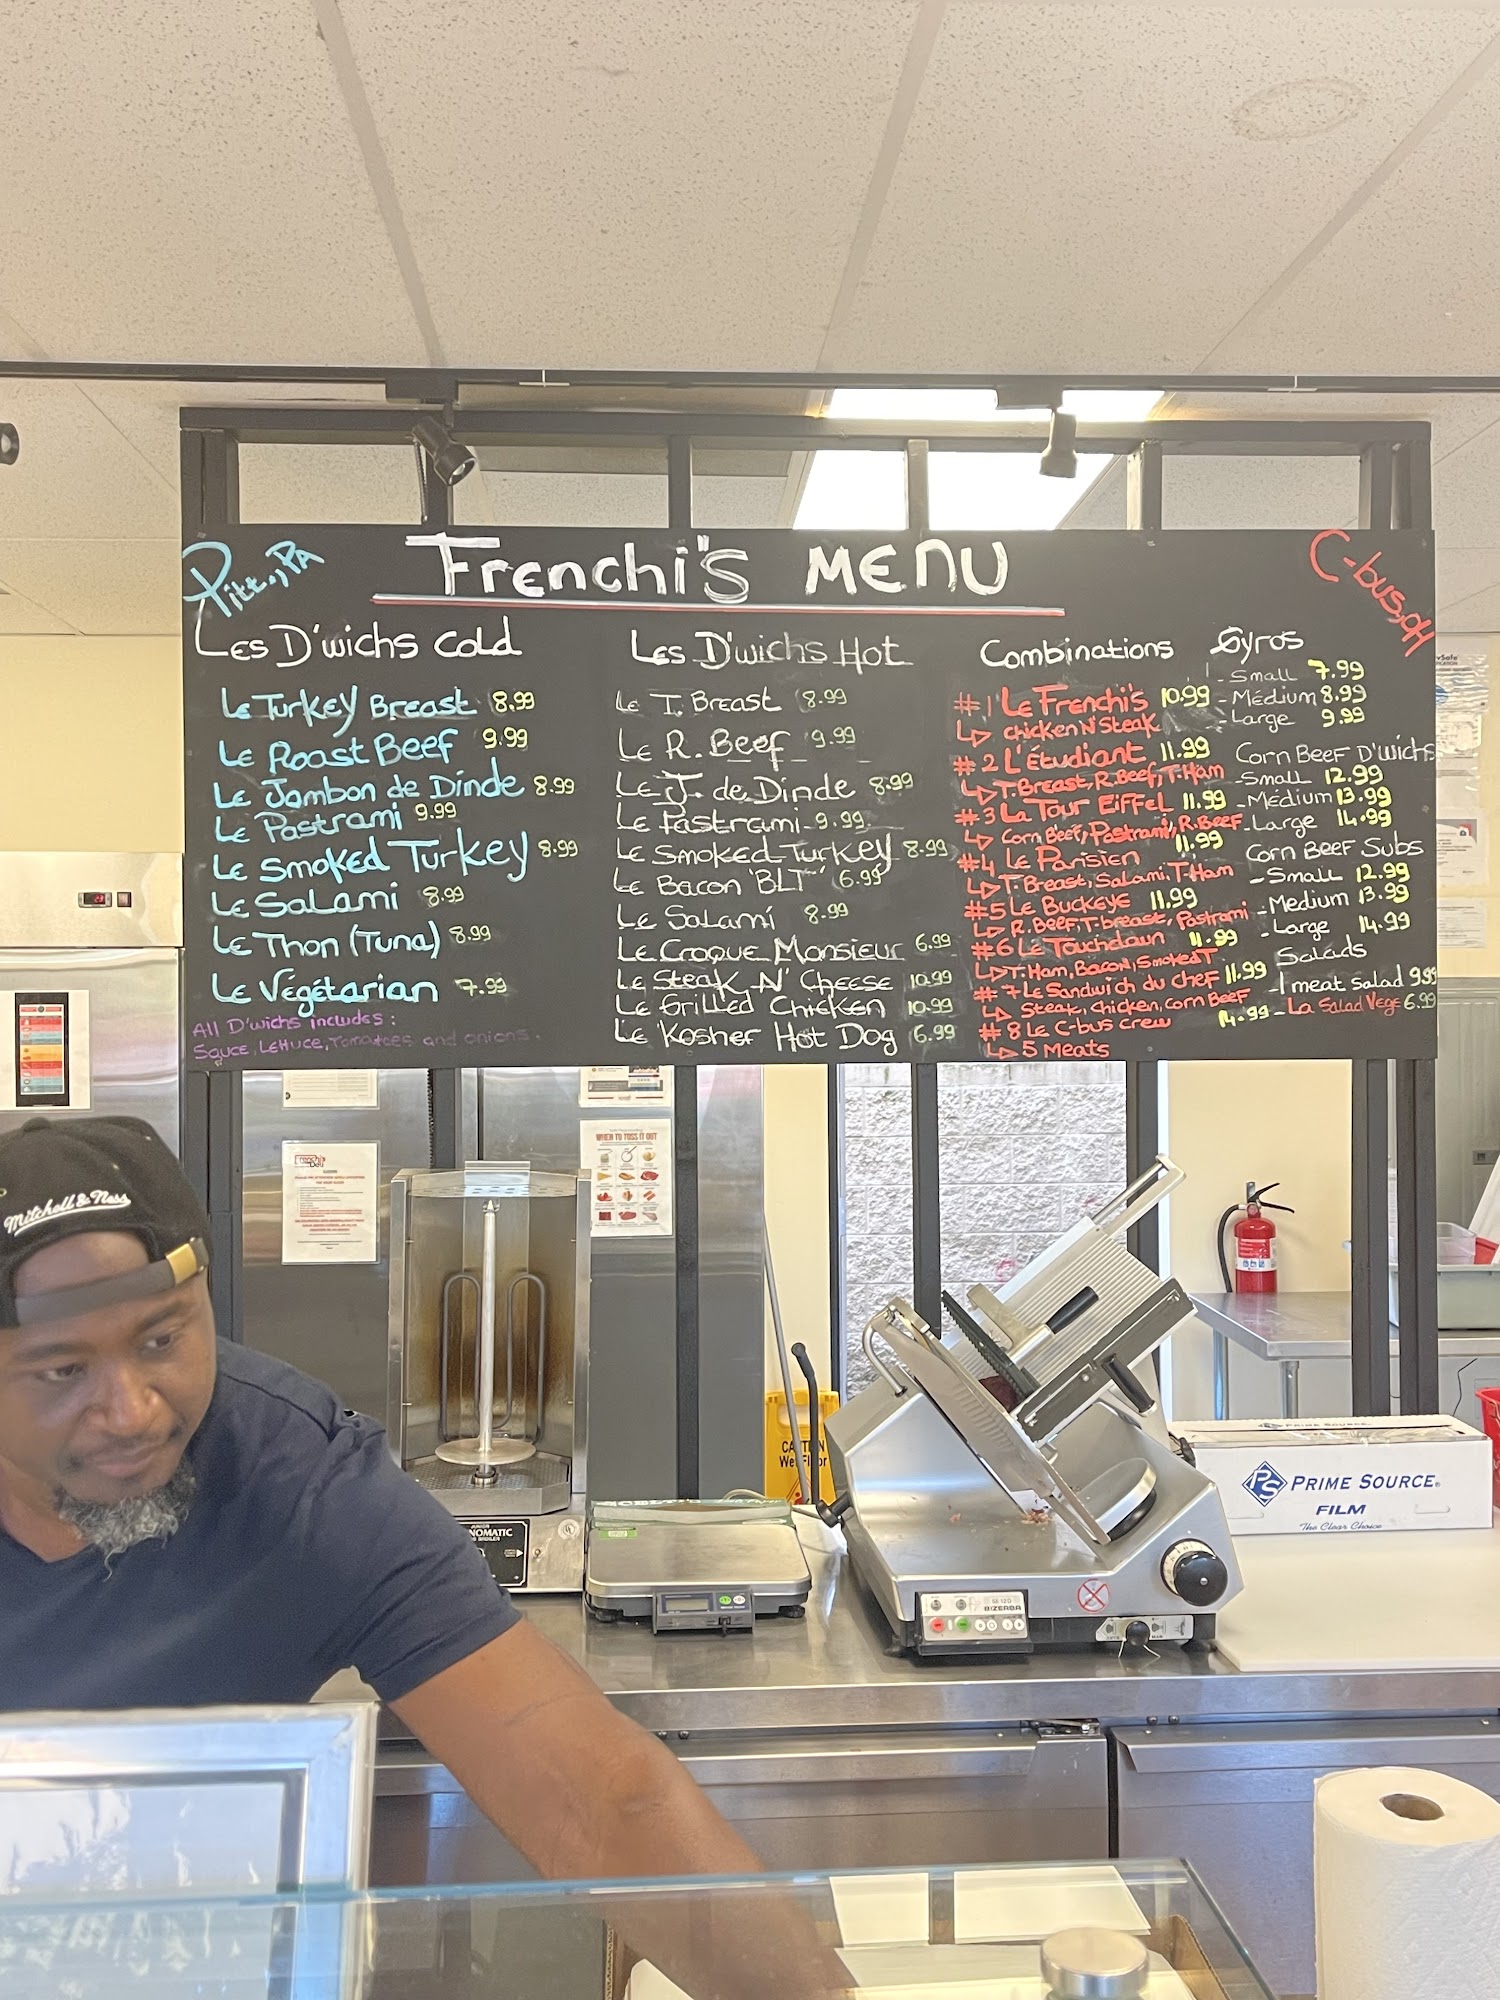 Pitt., PA
Frenchi's MENU
C-bus, OH
Les D'wichs Cold
Le Turkey Breast 8.99
Le Roast Beef 9.99
Le Jambon de Dinde 8.99
Le Pastrami 9.99
Le Smoked Turkey 8.99
Le Salami 8.99
Le Thon (Tuna) 8.99
Le Végétarian 7.99
All D'wichs includes:
Sauce, Lettuce, Tomatoes and onions.
Les D'wichs Hot
Le T. Breast 8.99
Le R. Beef 9.99
Le J. de Dinde 8.99
Le Pastrami 9.99
Le Smoked Turkey 8.99
Le Bacon 'BLT' 6.99
Le Salami 8.99
Le Croque Monsieur 6.99
Le Steak N' Cheese 10.99
Le Grilled Chicken 10.99
Le Kosher Hot Dog 6.99
Combinations
#1 Le Frenchi's 10.99
Chicken N' Steak
#2 L'Étudiant 11.99
T. Breast, R. Beef, T. Ham
#3 La Tour Eiffel 11.99
Corn Beef, Pastrami, R. Beef
#4 Le Parisien 11.99
T. Breast, Salami, T. Ham
#5 Le Buckeye 11.99
R. Beef, T. breast, Pastrami
#6 Le Touchdown 11.99
T. Ham, Bacon, Smoked T
#7 Le Sandwich du chef 11.99
Steak, Chicken, Corn Beef
#8 Le C-bus crew 14.99
5 Meats
Gyros
- Small 7.99
- Médium 8.99
- Large 9.99
Corn Beef D'wichs
- Small 12.99
- Médium 13.99
- Large 14.99
Corn Beef Subs
- Small 12.99
- Medium 13.99
- Large 14.99
Salads
- 1 meat salad 9.99
- La Salad Vege 6.99
Mitchell & Ness
Frenchi's
Deli
WHEN TO TOSS IT OUT
CAUTION
Wet Floor
PRIME SOURCE
PS PRIME SOURCE®
FILM
The Clear Choice
BIZERBA